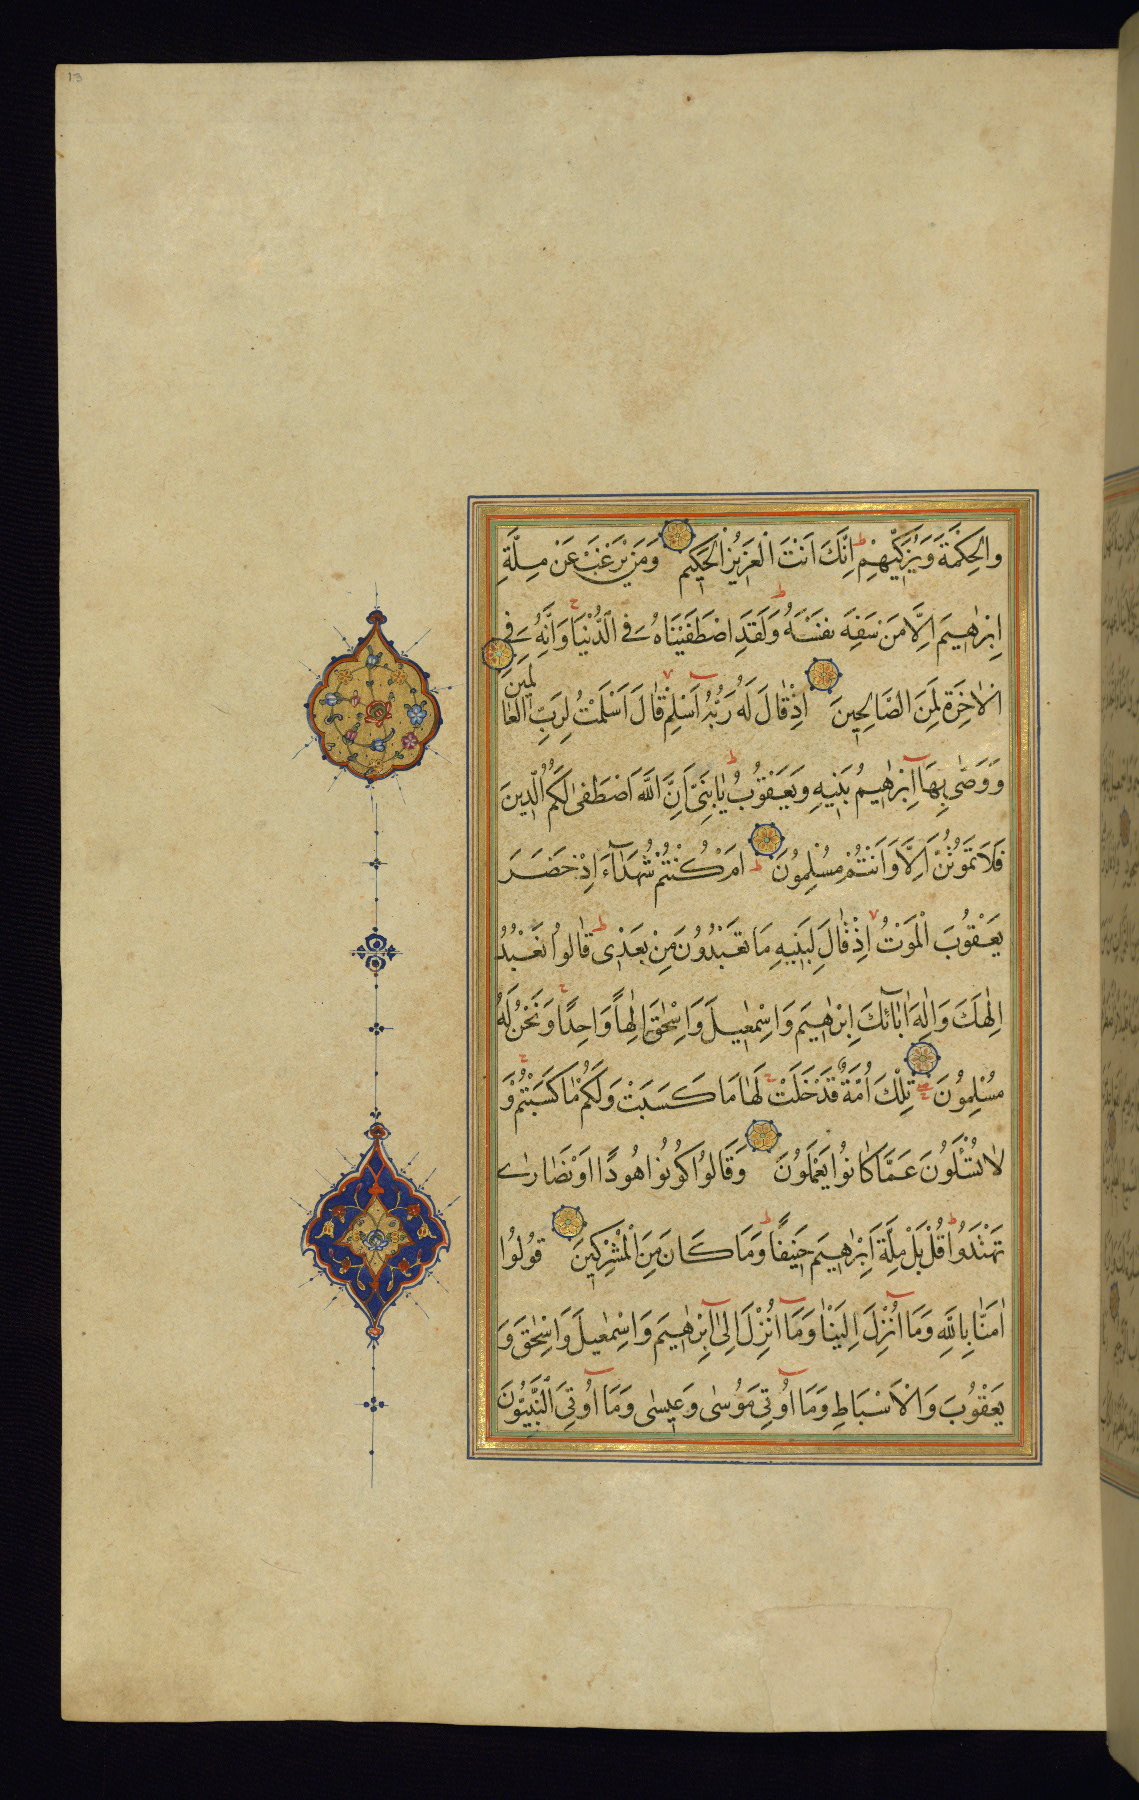 13
والْحِكْمَةَ وَيُزَكِّيهِمْ ط اِنَّكَ اَنْتَ الْعَزِيزُ الْحَكِيمُ وَمَنْ يَرْغَبُ عَنْ مِلَّةِ
اِبْرٰهِيمَ اِلَّا مَنْ سَفِهَ نَفْسَهُ ط وَلَقَدِ اصْطَفَيْنَاهُ فِي الدُّنْيَا ج وَاِنَّهُ فِي
الْاٰخِرَةِ لَمِنَ الصَّالِحِينَ اِذْ قَالَ لَهُ رَبُّهُ اَسْلِمْ قَالَ اَسْلَمْتُ لِرَبِّ الْعَالَمِينَ
وَوَصّٰى بِهَا اِبْرٰهِيمُ بَنِيهِ وَيَعْقُوبُ ط يَابَنِيَّ اِنَّ اللّٰهَ اصْطَفٰى لَكُمُ الدِّينَ
فَلَا تَمُوتُنَّ اِلَّا وَاَنْتُمْ مُسْلِمُونَ ط اَمْ كُنْتُمْ شُهَدَآءَ اِذْ حَضَرَ
يَعْقُوبَ الْمَوْتُ اِذْ قَالَ لِبَنِيهِ مَا تَعْبُدُونَ مِنْ بَعْدِي ط قَالُوا نَعْبُدُ
اِلٰهَكَ وَاِلٰهَ اٰبَآئِكَ اِبْرٰهِيمَ وَاِسْمٰعِيلَ وَاِسْحٰقَ اِلٰهًا وَاحِدًا ج وَنَحْنُ لَهُ
مُسْلِمُونَ تِلْكَ اُمَّةٌ قَدْ خَلَتْ ج لَهَا مَا كَسَبَتْ وَلَكُمْ مَا كَسَبْتُمْ ج وَ
لَا تُسْئَلُونَ عَمَّا كَانُوا يَعْمَلُونَ وَقَالُوا كُونُوا هُودًا اَوْ نَصَارٰى
تَهْتَدُوا ط قُلْ بَلْ مِلَّةَ اِبْرٰهِيمَ حَنِيفًا ط وَمَا كَانَ مِنَ الْمُشْرِكِينَ قُولُوا
اٰمَنَّا بِاللّٰهِ وَمَا اُنْزِلَ اِلَيْنَا وَمَا اُنْزِلَ اِلٰى اِبْرٰهِيمَ وَاِسْمٰعِيلَ وَاِسْحٰقَ وَ
يَعْقُوبَ وَالْاَسْبَاطِ وَمَا اُوتِيَ مُوسٰى وَعِيسٰى وَمَا اُوتِيَ النَّبِيُّونَ